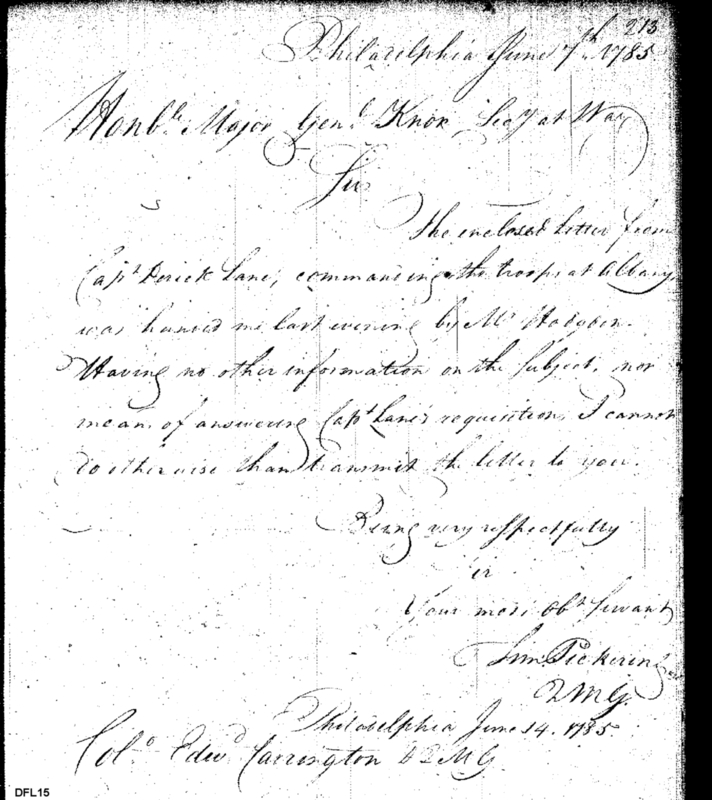 213
Philadelphia June 7th 1785
Honble Major Genl Knox, Secy at War
Sir
The enclosed letter from
Capt Derick Lane, commanding the troops at Albany
was handed me last evening by Mr Hodgdon.
Having no other information on the subject, nor
means of answering Capt Lane's requisition, I cannot
do otherwise than transmit the letter to you.
Being very respectfully
Sir
Your most obt Servant
Tim Pickering
QMG.
Philadelphia June 14. 1785
Colo Edwd Carrington DQMG
DFL15